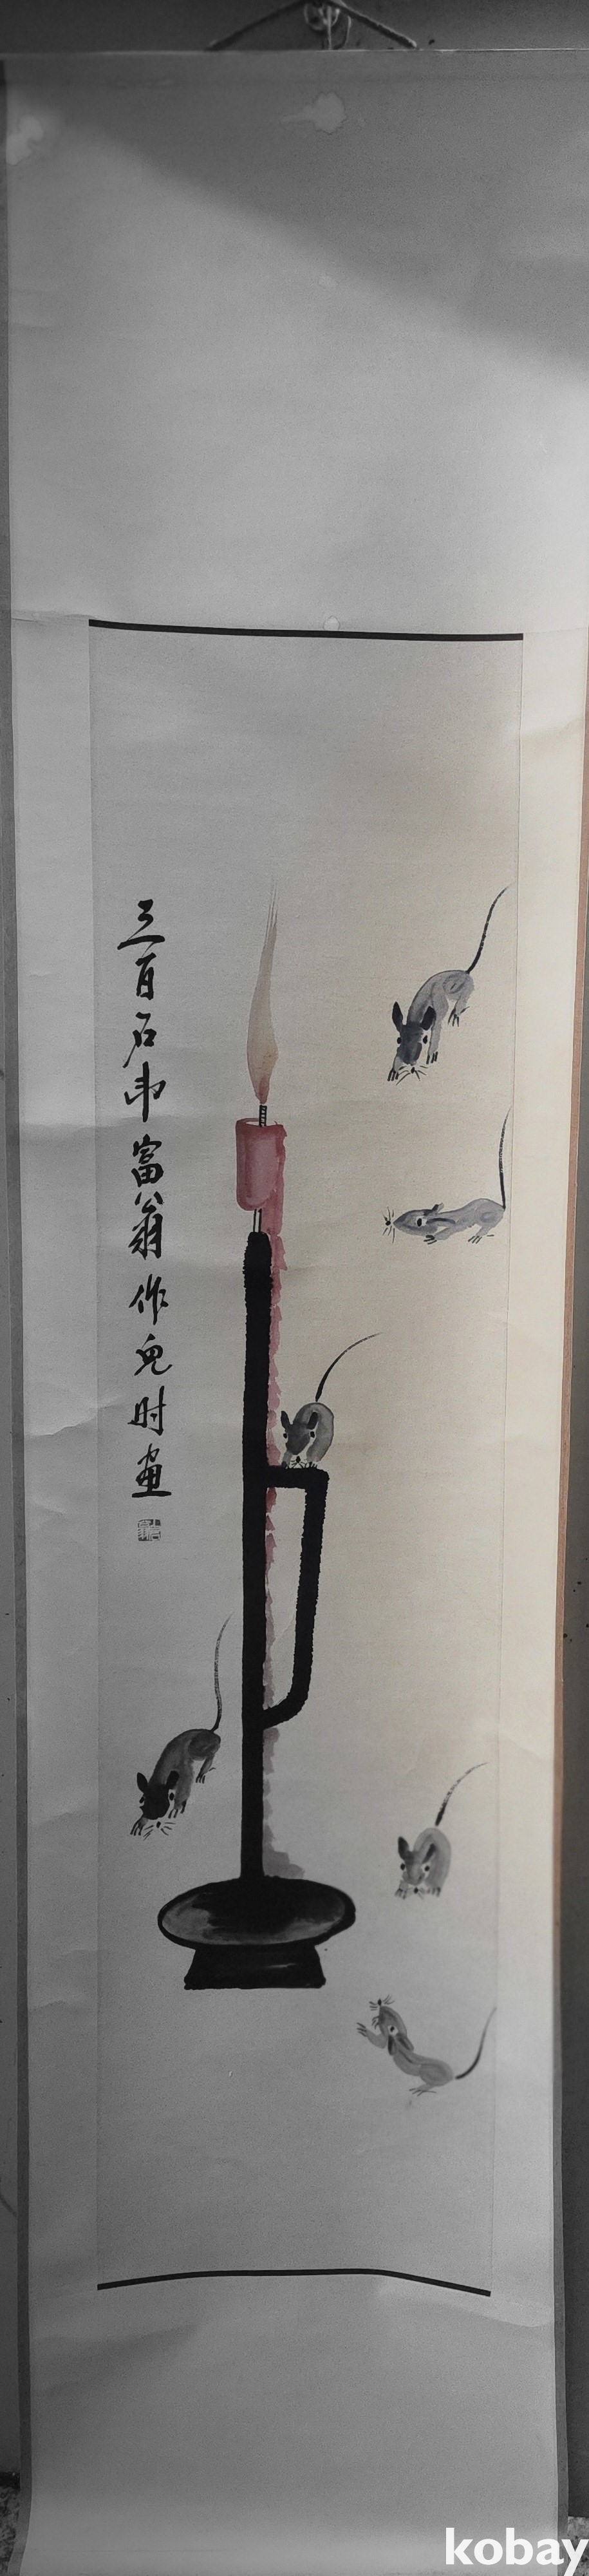 三百石印富翁作兒时畫
kobay